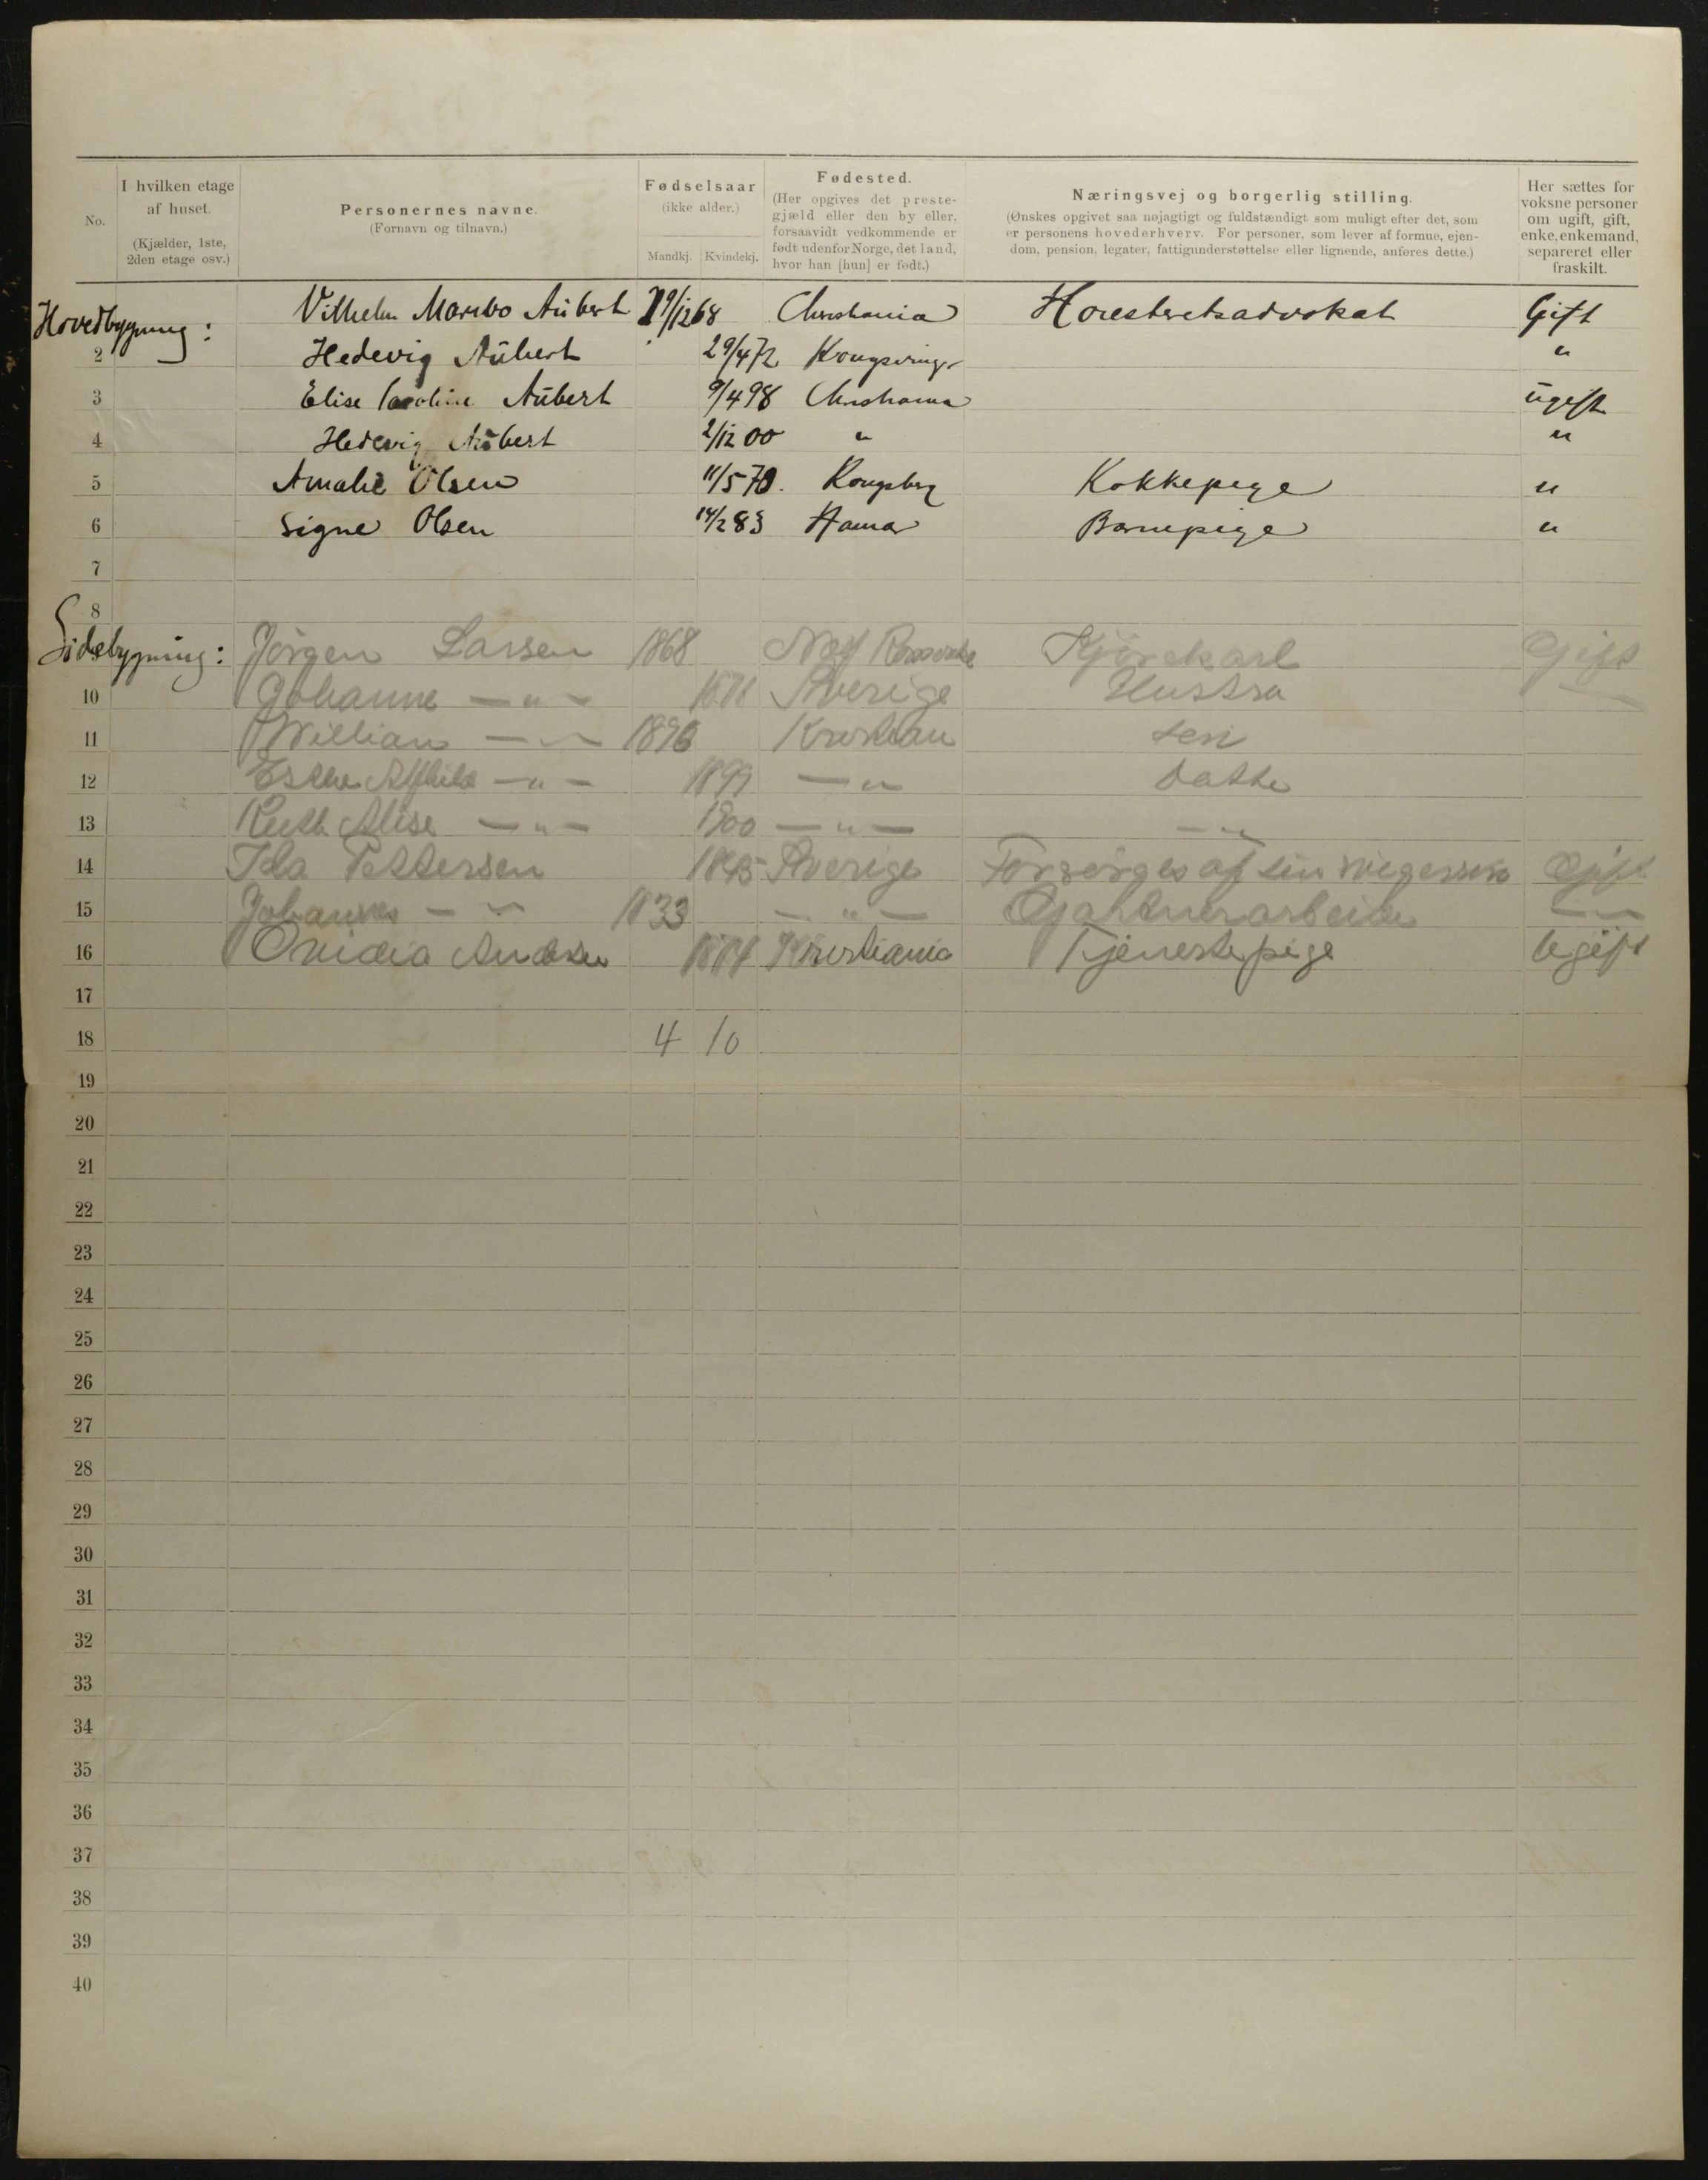 No.
I hvilken etage af huset.
(Kjælder, 1ste, 2den etage osv.)
Personernes navne.
(Fornavn og tilnavn.)
Fødselsaar
(ikke alder.)
Mandkj. Kvindekj.
Fødested.
(Her opgives det preste-
gjæld eller den by eller,
forsaavidt vedkommende er
født udenfor Norge, det land,
hvor han [hun] er født.)
Næringsvej og borgerlig stilling.
(Ønskes opgivet saa nøjagtigt og fuldstændigt som muligt efter det, som
er personens hovederhverv. For personer, som lever af formue, ejen-
dom, pension, legater, fattigunderstøttelse eller lignende, anføres dette.)
Her sættes for
voksne personer
om ugift, gift,
enke, enkemand,
separeret eller
fraskilt.
Hovedbygning: Vilhelm Maribo Aubert /12 68 Christiania Høiesteretsadvokat Gift
2 Hedevig Aubert 29/4 72 Kongsvinger "
3 Elise Caroline Aubert 9/4 98 Christiania ugift
4 Hedevig Aubert 2/12 00 " "
5 Amalie Olsen 11/5 70. Kongsberg Kokkepige "
6 Signe Olsen 14/2 83 Hamar Barnepige "
7
8
Sidebygning: Jörgen Larsen 1868 Kjörekarl Gift
10 Johanne — " — Sverige Hustru —
11 William — " — 1896 Kristian sön
12 Alfhild — " — 1899 — " Datter
13 Ruth Alise — " — 1900 — " — — " —
14 Ida Pettersen 1845 Sverige Forsörges af sin Gift
15 Johannes — " — 1833 — " — Gartnerarbeider — " —
16 Andersen 1874 Kristiania Tjenestepige Ugift
17
18 4 10
19
20
21
22
23
24
25
26
27
28
29
30
31
32
33
34
35
36
37
38
39
40